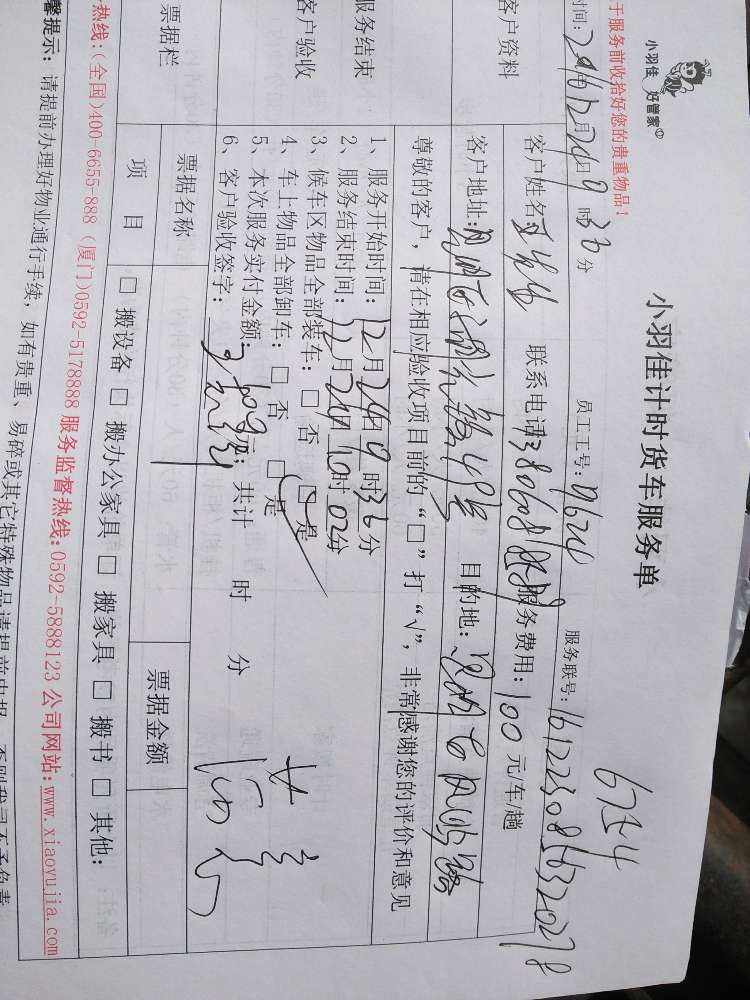 小羽佳 好管家
小羽佳计时货车服务单
6754
于服务前收拾好您的贵重物品！
时间: 2016 12月24日 9时36分 员工工号: 服务联号: 1612230856320278
客户资料
客户姓名 联系电话 服务费用: 100元/车/趟
客户地址: 目的地:
尊敬的客户，请在相应验收项目前的“□”打“√”，非常感谢您的评价和意见
服务结束
客户验收
1、服务开始时间: 12月24日9时36分
2、服务结束时间: 12月24日10时02分
3、候车区物品全部装车: □ 否 □ 是
4、车上物品全部卸车: □ 否 □ 是
5、本次服务实付金额: 100元; 共计 时 分
6、客户验收签字:
票据栏
票据名称 票据金额
项 目 □ 搬设备 □ 搬办公家具 □ 搬家具 □ 搬书 □ 其他:
热线:(全国)400-6655-888 (厦门)0592-5178888 服务监督热线:0592-5888123 公司网站:www.xiaoyujia.com
馨提示: 请提前办理好物业通行手续, 如有贵重、易碎或其它特殊物品请提前申报, 否则我司不予负责